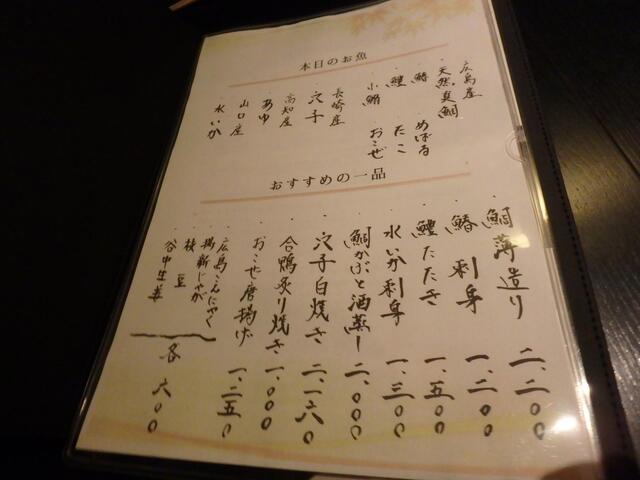 本日のお魚
広島産
天然真鯛
鰆 めばる
鱧 たこ
小鰯 おこぜ
長崎産
穴子
高知産
あゆ
山口産
水いか
おすすめの一品
鯛薄造り 二、二〇〇
鰆刺身 一、二〇〇
鱧たたき 一、五〇〇
水いか刺身 一、三〇〇
鯛かぶと酒蒸し 二、〇〇〇
穴子白焼き 二、一六〇
合鴨炙り焼き 一、〇〇〇
おこぜ唐揚げ 一、二五〇
広島こんにゃく
揚新じゃが
枝豆
谷中生姜
各 六〇〇